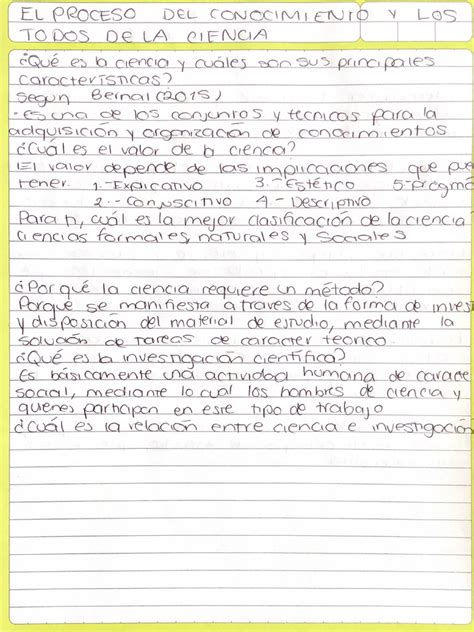 EL PROCESO DEL CONOCIMIENTO Y LOS
TODOS DE LA CIENCIA
¿Qué es la ciencia y cuáles son sus principales
características?
Según Bernal (2015)
-Es una de los conjuntos y tecnicas para la
adquisición y organización de conocimientos
¿Cuál es el valor de la cienca?
El valor depende de las implicaciones que pue
tener 1.-Explicativo 3.-Estético 5-pragma
2.-Conuscitivo 4-Descriptivo
Para ti, cuál es la mejor clasificación de la ciencia
Ciencias formales, naturales y sociales
¿Por qué la ciencia requiere un método?
Porque se manifiesta a traves de la forma de inves
y disposición del material de estudio, mediante la
solución de tareas de caracter teorico
¿Qué es la investigación científica?
Es básicamente una actividad humana de caracte
social, mediante lo cual los hombres de ciencia y
quienes participan en este tipo de trabajo
¿Cuál es la relación entre ciencia e investigación